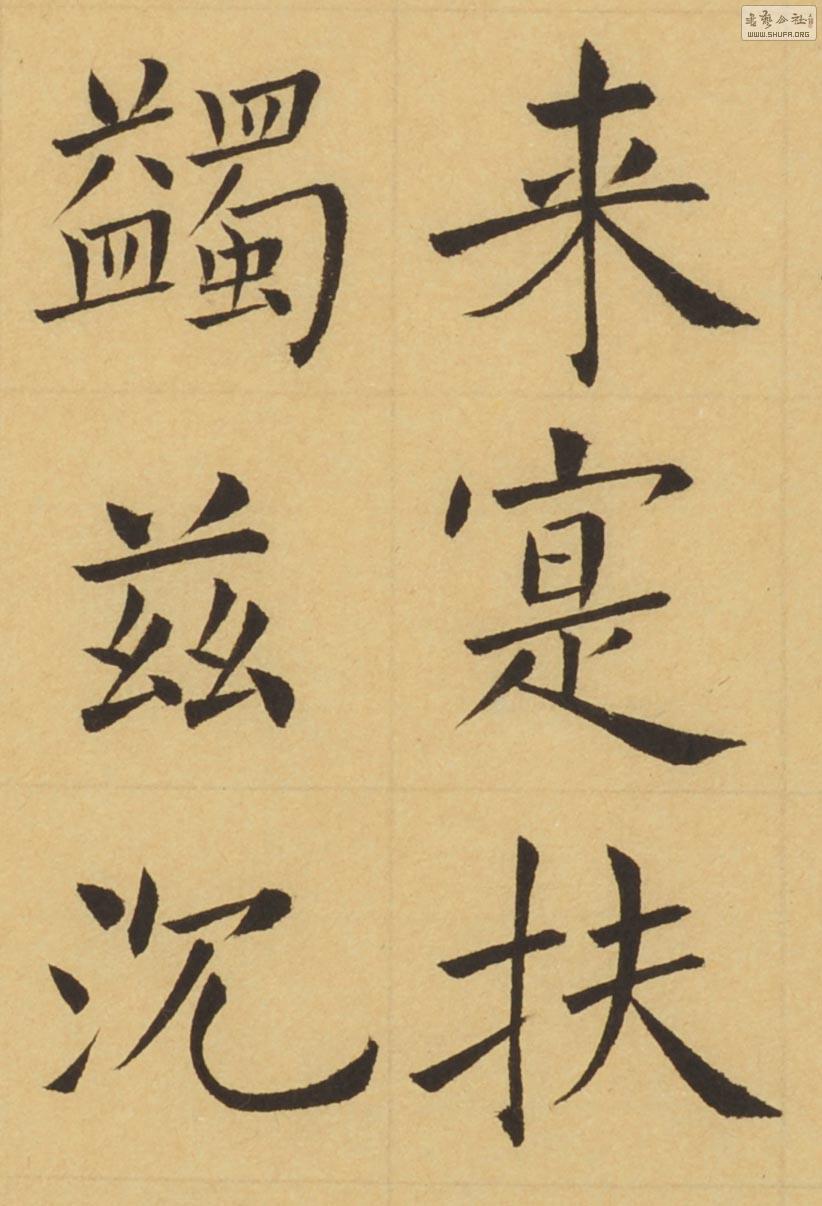 来寔扶
蠲兹沉
書藝公社
WWW.SHUFA.ORG